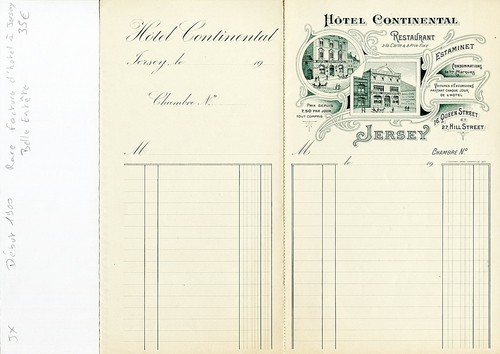 Rare Facture d'hotel à Jersey 35€
Belle entête
Début 1900
JX
Hôtel Continental
Jersey, le 19
Chambre No
M
Hôtel Continental
Restaurant
à la Carte & à Prix fixe
Estaminet
Consommations
de 1res Marques
Voitures d'Excursions
partant chaque jour,
de l'Hôtel
Prix depuis
7.50 par jour
tout compris
16, Queen Street
et
27, Hill Street
Jersey
M
Chambre No
le 19